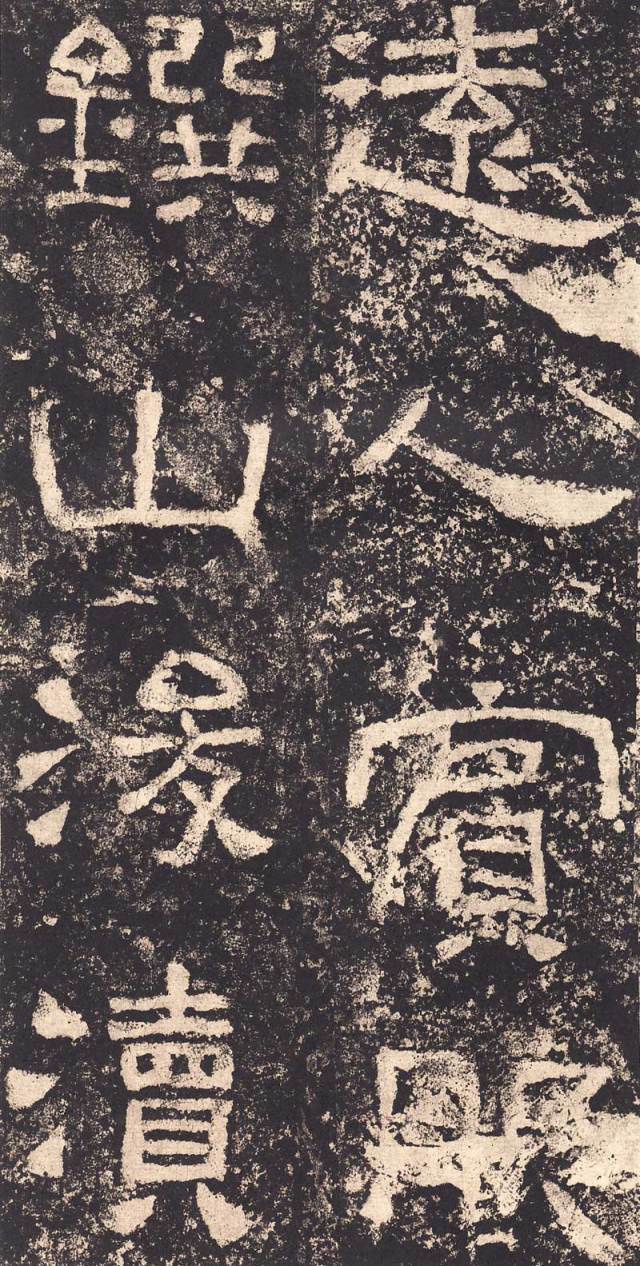 遠人賓服
鐉山浚瀆